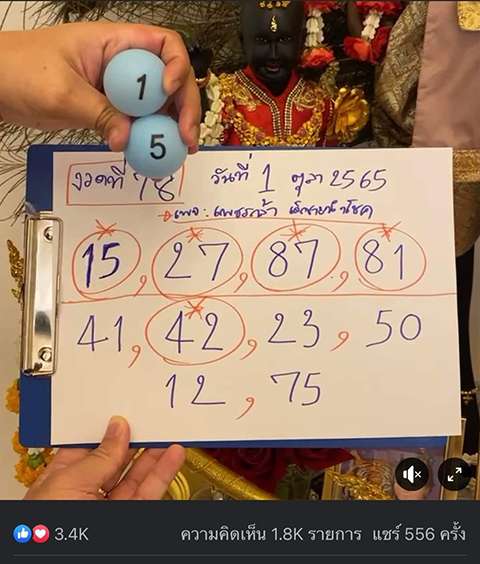 1
5
งวดที่ 78 วันที่ 1 ตุลา 2565
เพจ : เพชรกล้า
15, 27, 87, 81
41, 42, 23, 50
12, 75
3.4K ความคิดเห็น 1.8K รายการ แชร์ 556 ครั้ง